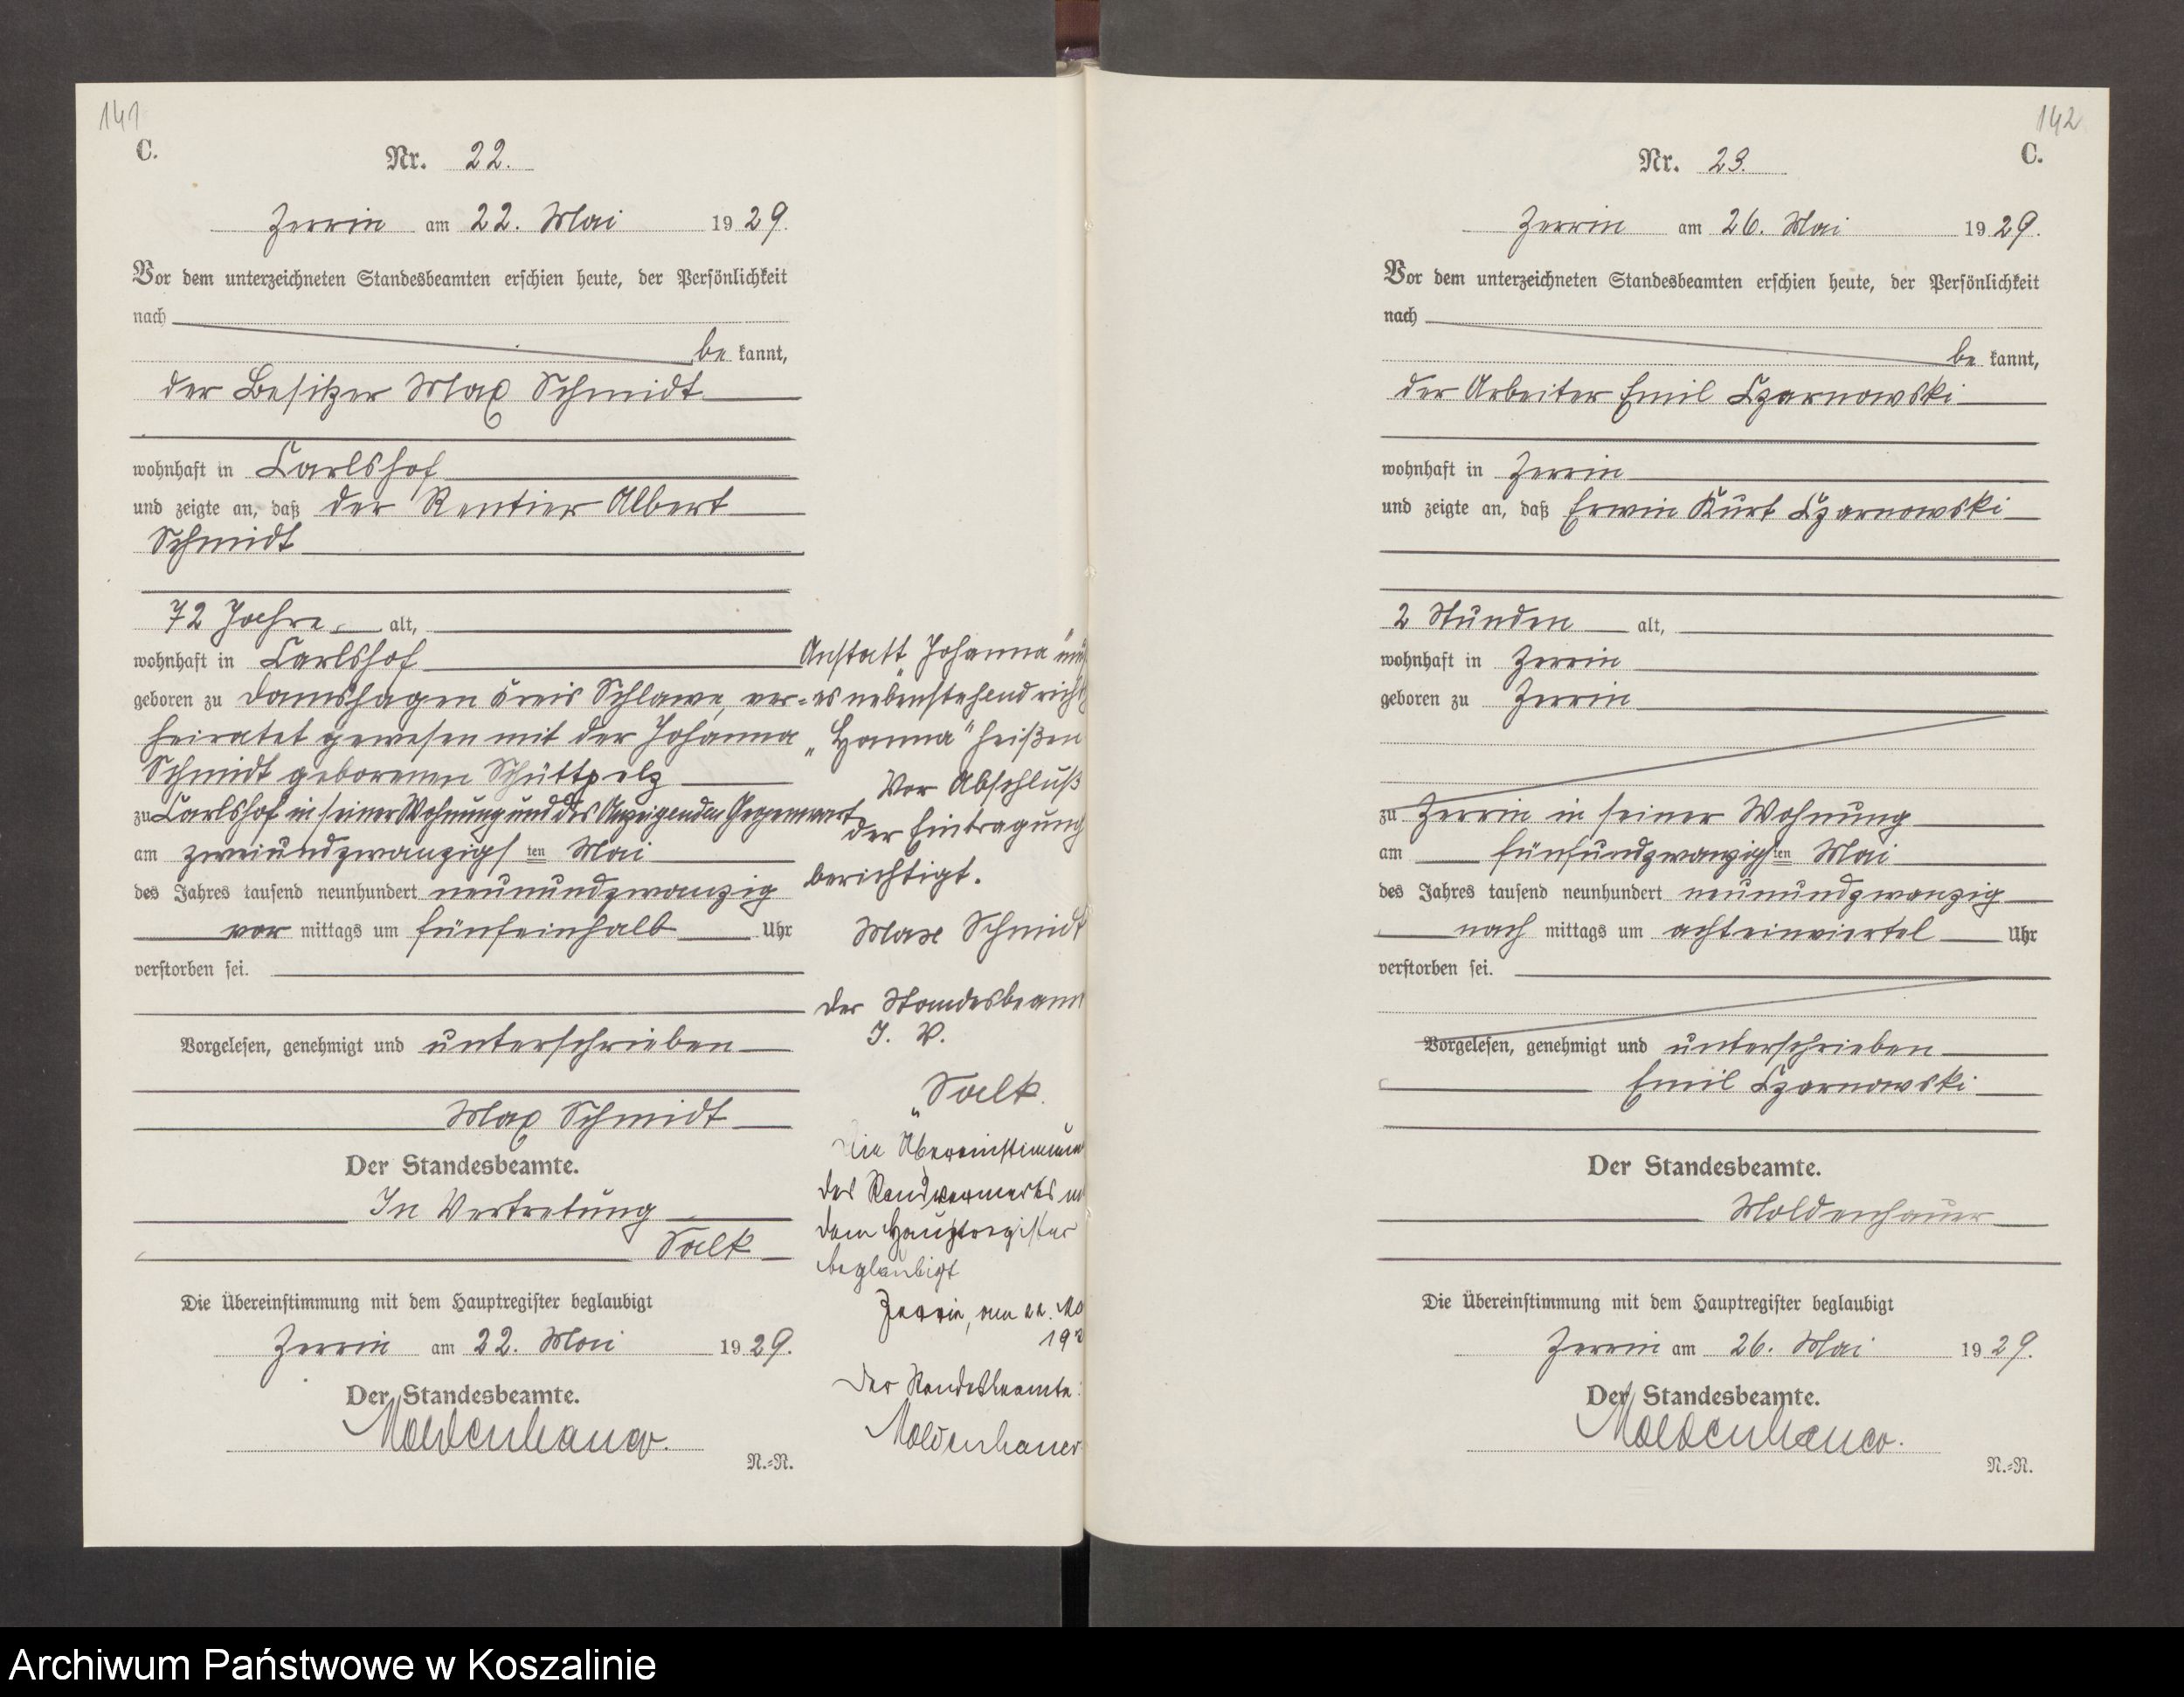 141
C.
Nr. 22.
Zerrin am 22. Mai 1929.
Vor dem unterzeichneten Standesbeamten erschien heute, der Persönlichkeit
nach
be kannt,
der Besitzer Max Schmidt
wohnhaft in Carlshof
und zeigte an, daß der Rentier Albert
Schmidt
72 Jahre alt,
wohnhaft in Carlshof
geboren zu Damshagen Kreis Schlawe, ver-
heiratet gewesen mit der Johanna
Schmidt geborenen Schüttpelz
zu Carlshof in seiner Wohnung und des Anzeigenden Gegenwart
am zweiundzwanzigsten Mai
des Jahres tausend neunhundert neunundzwanzig
vor mittags um fünfeinhalb Uhr
verstorben sei.
Vorgelesen, genehmigt und unterschrieben
Max Schmidt
Der Standesbeamte.
In Vertretung
Salk
Die Übereinstimmung mit dem Hauptregister beglaubigt
Zerrin am 22. Mai 1929.
Der Standesbeamte.
Moldenhauer.
N.=R.
Anstatt „Johanna"
es nebenstehend richt
„Hanna" heißen
Vor Abschluß
der Eintragung
berichtigt.
Max Schmidt
Der Standesbeamt
I. V.
Salk.
Die Übereinstimmun
des Randvermerks m
dem Hauptregister
beglaubigt
Zerrin, am 22. Ma
192
Der Standesbeamte:
Moldenhauer
142
C.
Nr. 23.
Zerrin am 26. Mai 1929.
Vor dem unterzeichneten Standesbeamten erschien heute, der Persönlichkeit
nach
be kannt,
der Arbeiter Emil Czarnowski
wohnhaft in Zerrin
und zeigte an, daß Erwin Kurt Czarnowski
2 Stunden alt,
wohnhaft in Zerrin
geboren zu Zerrin
zu Zerrin in seiner Wohnung
am fünfundzwanzigsten Mai
des Jahres tausend neunhundert neunundzwanzig
nach mittags um achteinviertel Uhr
verstorben sei.
Vorgelesen, genehmigt und unterschrieben
Emil Czarnowski
Der Standesbeamte.
Moldenhauer
Die Übereinstimmung mit dem Hauptregister beglaubigt
Zerrin am 26. Mai 1929.
Der Standesbeamte.
Moldenhauer.
N.=R.
Archiwum Państwowe w Koszalinie